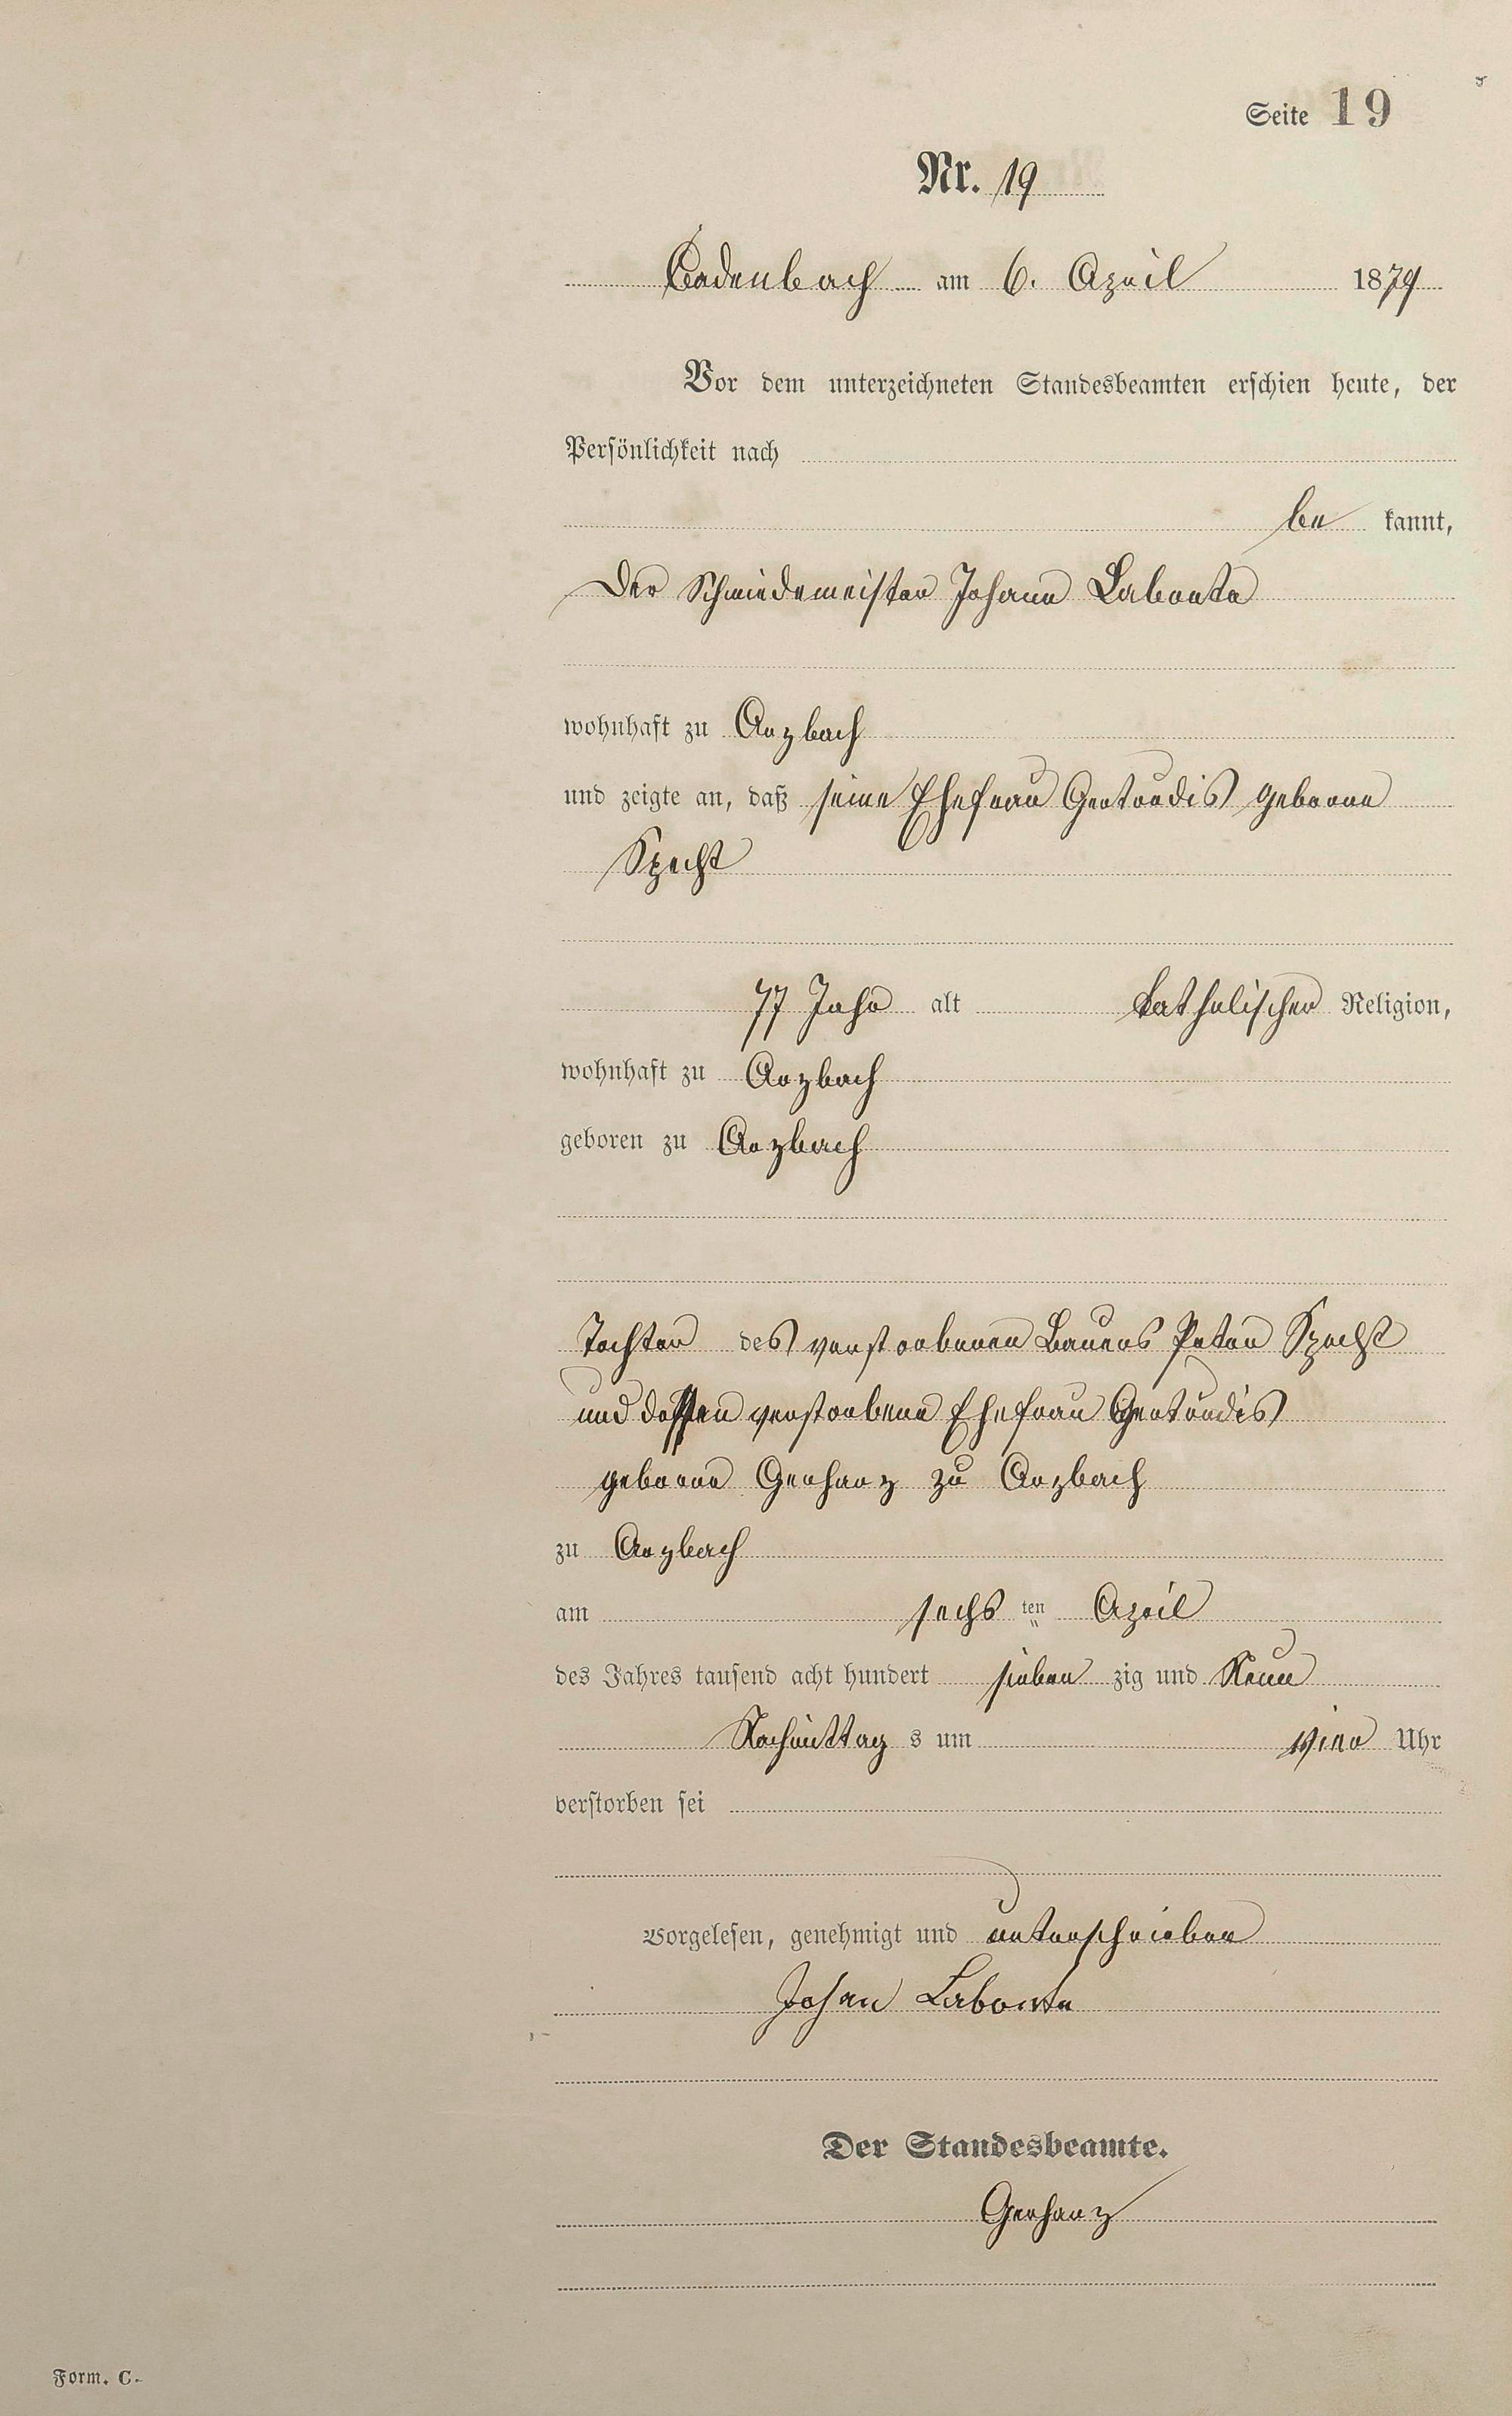 Seite 19
Nr. 19
Cadenbach am 6. April 1879
Vor dem unterzeichneten Standesbeamten erschien heute, der
Persönlichkeit nach
be kannt,
Der Schmiedemeister Johann Labonte
wohnhaft zu Arzbach
und zeigte an, daß seine Ehefrau Gertrudis geborne
Specht
77 Jahr alt katholischer Religion,
wohnhaft zu Arzbach
geboren zu Arzbach
Tochter des verstorbenen Bauers Peter Specht
und dessen verstorbene Ehefrau Gertrudis
geborne Gerharz zu Arzbach
zu Arzbach
am sechs ten April
des Jahres tausend acht hundert sieben zig und Neun
Nachmittag s um vier Uhr
verstorben sei
Vorgelesen, genehmigt und unterschrieben
Johan Labonte
Der Standesbeamte.
Gerharz
Form. C.